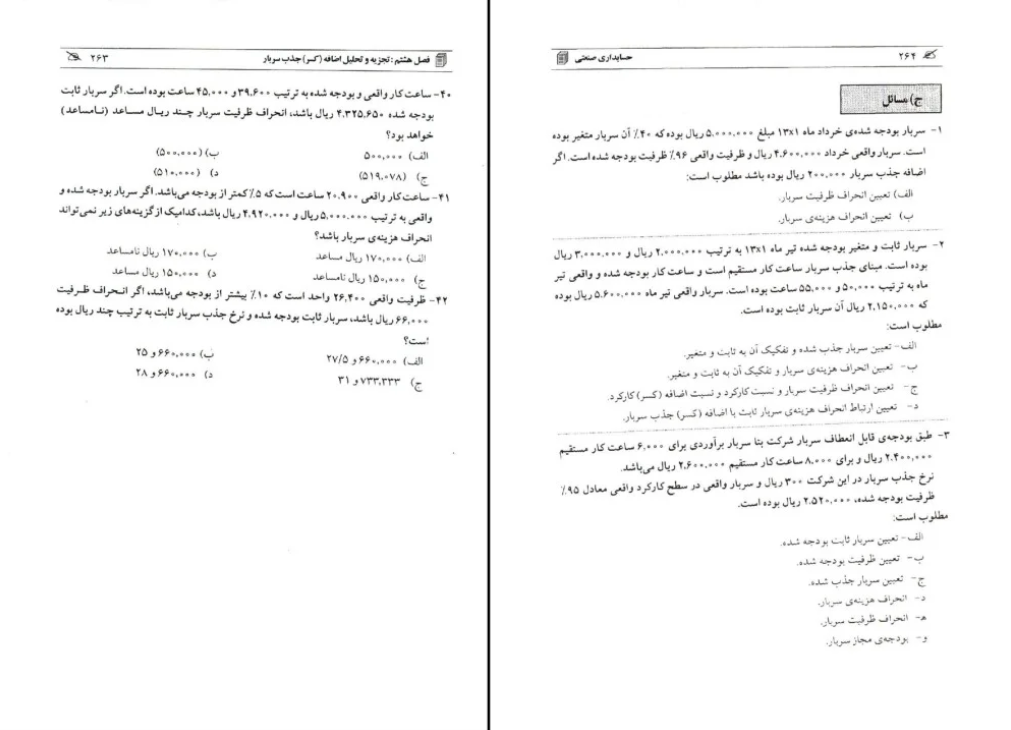 فصل هشتم : تجزیه و تحلیل اضافه (کسر) جذب سربار ۲۶۳
۴۰- ساعت کار واقعی و بودجه شده به ترتیب ۳۹،۶۰۰ و ۴۵،۰۰۰ ساعت بوده است. اگر سربار ثابت
بودجه شده ۴،۳۲۵،۶۵۰ ریال باشد، انحراف ظرفیت سربار چند ریال مساعد (نامساعد)
خواهد بود؟
الف) ۵۰۰،۰۰۰ ب) (۵۰۰،۰۰۰)
ج) (۵۱۹،۰۷۸) د) (۵۱۰،۰۰۰)
۴۱- ساعت کار واقعی ۲۰،۹۰۰ ساعت است که ۵٪ کمتر از بودجه می‌باشد. اگر سربار بودجه شده و
واقعی به ترتیب ۵،۰۰۰،۰۰۰ ریال و ۴،۹۲۰،۰۰۰ ریال باشد، کدامیک از گزینه‌های زیر نمی‌تواند
انحراف هزینه‌ی سربار باشد؟
الف) ۱۷۰،۰۰۰ ریال مساعد ب) ۱۷۰،۰۰۰ ریال نامساعد
ج) ۱۵۰،۰۰۰ ریال نامساعد د) ۱۵۰،۰۰۰ ریال مساعد
۴۲- ظرفیت واقعی ۲۶،۴۰۰ واحد است که ۱۰٪ بیشتر از بودجه می‌باشد، اگر انحراف ظرفیت
۶۶،۰۰۰ ریال باشد، سربار ثابت بودجه شده و نرخ جذب سربار ثابت به ترتیب چند ریال بوده
است؟
الف) ۶۶۰،۰۰۰ و ۲۷/۵ ب) ۶۶۰،۰۰۰ و ۲۵
ج) ۷۳۳،۳۳۳ و ۳۱ د) ۶۶۰،۰۰۰ و ۲۸
۲۶۴ حسابداری صنعتی
ج) مسائل
۱- سربار بودجه شده‌ی خرداد ماه ۱۳x۱ مبلغ ۵،۰۰۰،۰۰۰ ریال بوده که ۴۰٪ آن سربار متغیر بوده
است. سربار واقعی خرداد ۴،۶۰۰،۰۰۰ ریال و ظرفیت واقعی ۹۶٪ ظرفیت بودجه شده است. اگر
اضافه جذب سربار ۲۰۰،۰۰۰ ریال بوده باشد مطلوب است:
الف) تعیین انحراف ظرفیت سربار.
ب) تعیین انحراف هزینه‌ی سربار.
۲- سربار ثابت و متغیر بودجه شده تیر ماه ۱۳x۱ به ترتیب ۲،۰۰۰،۰۰۰ ریال و ۳،۰۰۰،۰۰۰ ریال
بوده است. مبنای جذب سربار ساعت کار مستقیم است و ساعت کار بودجه شده و واقعی تیر
ماه به ترتیب ۵۰،۰۰۰ و ۵۵،۰۰۰ ساعت بوده است. سربار واقعی تیر ماه ۵،۶۰۰،۰۰۰ ریال بوده
که ۲،۱۵۰،۰۰۰ ریال آن سربار ثابت بوده است.
مطلوب است:
الف- تعیین سربار جذب شده و تفکیک آن به ثابت و متغیر.
ب- تعیین انحراف هزینه‌ی سربار و تفکیک آن به ثابت و متغیر.
ج- تعیین انحراف ظرفیت سربار و نسبت کارکرد و نسبت اضافه (کسر) کارکرد.
د- تعیین ارتباط انحراف هزینه‌ی سربار ثابت با اضافه (کسر) جذب سربار.
۳- طبق بودجه‌ی قابل انعطاف سربار شرکت بتا سربار برآوردی برای ۶،۰۰۰ ساعت کار مستقیم
۲،۴۰۰،۰۰۰ ریال و برای ۸،۰۰۰ ساعت کار مستقیم ۲،۶۰۰،۰۰۰ ریال می‌باشد.
نرخ جذب سربار در این شرکت ۳۰۰ ریال و سربار واقعی در سطح کارکرد واقعی معادل ۹۵٪
ظرفیت بودجه شده، ۲،۵۲۰،۰۰۰ ریال بوده است.
مطلوب است:
الف- تعیین سربار ثابت بودجه شده.
ب- تعیین ظرفیت بودجه شده.
ج- تعیین سربار جذب شده.
د- انحراف هزینه‌ی سربار.
ه- انحراف ظرفیت سربار.
و- بودجه‌ی مجاز سربار.